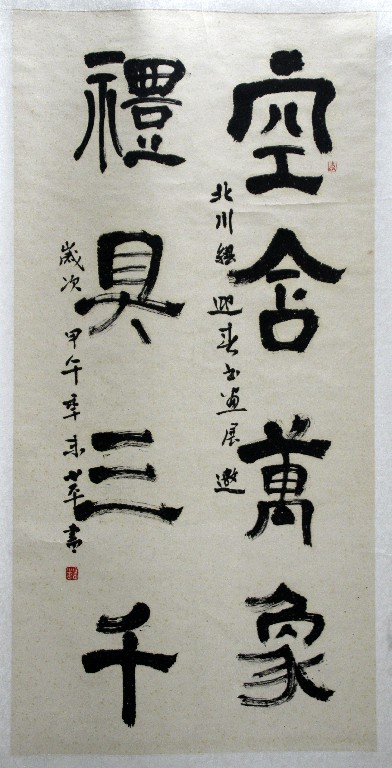 空含萬象
北川縣迎春书画展邀
禮具三千
歲次甲午季末苹書